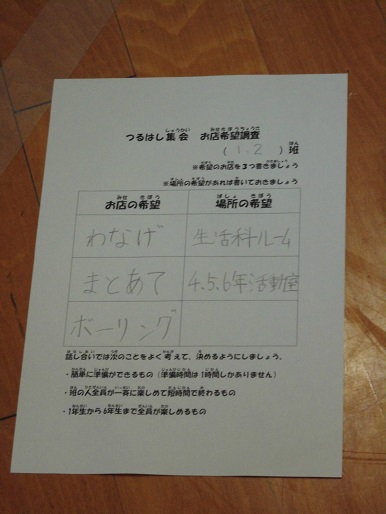 つるはし集会　お店希望調査
(1.2)班
※希望のお店を3つ書きましょう
※場所の希望があれば書いておきましょう
お店の希望　場所の希望
わなげ　生活科ルーム
まとあて　4.5.6年活動室
ボーリング
話し合いでは次のことをよく考えて、決めるようにしましょう。
・簡単に準備ができるもの（準備時間は1時間しかありません）
・班の人全員が一斉に楽しめて短時間で終わるもの
・1年生から6年生まで全員が楽しめるもの